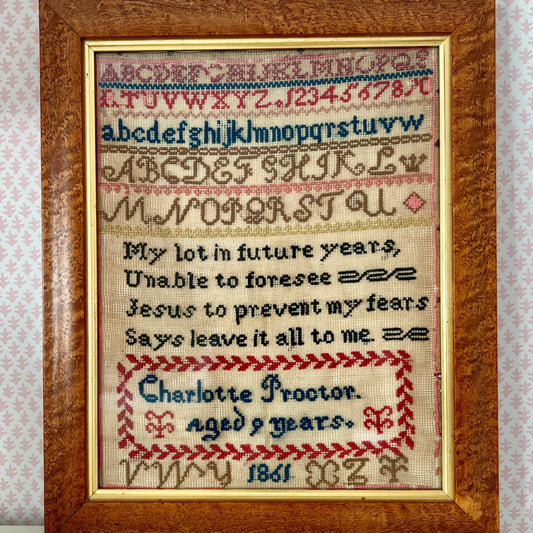 ABCDEFGHIJKLMNOPQ
TUVWXYZ.12345678
abcdefghijklmnopqrstuvw
ABCDEFGHIKL
MNOPQRSTU
My lot in future years,
Unable to foresee
Jesus to prevent my fears
Says leave it all to me.
Charlotte Proctor.
Aged 9 years.
VWY 1861 XZ